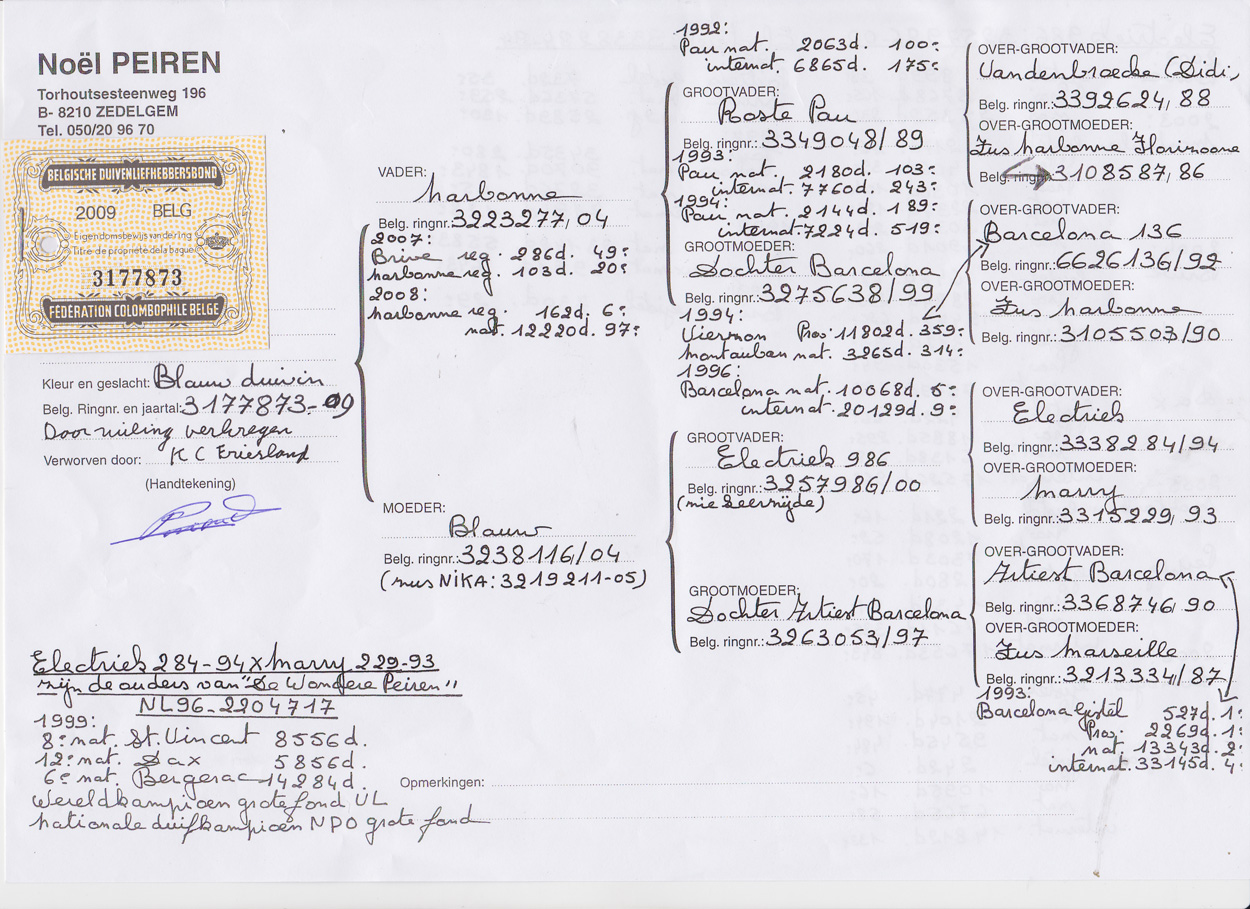 Noël PEIREN
Torhoutsesteenweg 196
B- 8210 ZEDELGEM
Tel. 050/20 96 70
BELGISCHE DUIVENLIEFHEBBERSBOND
2009 BELG
Eigendomsbewijs van de ring
Titre de propriété de la bague
3177873
FÉDÉRATION COLOMBOPHILE BELGE
Kleur en geslacht: Blauw duivin
Belg. Ringnr. en jaartal: 3177873-09
Door ruiling verkregen
Verworven door: K C Friesland
(Handtekening)
VADER:
Narbonne
Belg. ringnr.: 3223277/04
2007:
Brive reg. 286d. 49e
Narbonne reg. 103d. 20e
2008:
Narbonne reg. 162d. 6e
nat. 12220d. 97e
MOEDER:
Blauw
Belg. ringnr.: 3238116/04
(zus NIKA: 3219211-05)
1992:
Pau nat. 2063d. 100e
internat. 6865d. 175e
GROOTVADER:
Roste Pau
Belg. ringnr.: 3349048/89
1993:
Pau nat. 2180d. 103e
internat. 7760d. 243e
1994:
Pau nat. 2144d. 189e
internat. 7224d. 519e
GROOTMOEDER:
Dochter Barcelona
Belg. ringnr.: 3275638/99
1994:
Vierzon Prov. 11802d. 359e
Montauban nat. 3265d. 314e
1996:
Barcelona nat. 10068d. 5e
internat. 20129d. 9e
GROOTVADER:
Electriek 986
Belg. ringnr.: 3257986/00
GROOTMOEDER:
Dochter Artiest Barcelona
Belg. ringnr.: 3263053/97
OVER-GROOTVADER:
Vandenbroecke (Didi)
Belg. ringnr.: 3392624/88
OVER-GROOTMOEDER:
Zus Narbonne Florizoone
Belg. ringnr.: 3108587/86
OVER-GROOTVADER:
Barcelona 136
Belg. ringnr.: 6626136/92
OVER-GROOTMOEDER:
Zus Narbonne
Belg. ringnr.: 3105503/90
OVER-GROOTVADER:
Electriek
Belg. ringnr.: 3338284/94
OVER-GROOTMOEDER:
Marry
Belg. ringnr.: 3315229/93
OVER-GROOTVADER:
Artiest Barcelona
Belg. ringnr.: 3368746/90
OVER-GROOTMOEDER:
Zus Marseille
Belg. ringnr.: 3213334/87
1993:
Barcelona Gistel 527d. 1e
Prov. 2269d. 1e
nat. 13343d. 2e
internat. 33145d. 4e
Electriek 284-94 x Marry 229-93
zijn de ouders van "De Wondere Peiren"
NL96-2204717
1999:
8e nat. St. Vincent 8556d.
12e nat. Dax 5856d.
6e nat. Bergerac 14284d.
Wereldkampioen grote fond UL
Nationale duifkampioen NPO grote fond
Opmerkingen: